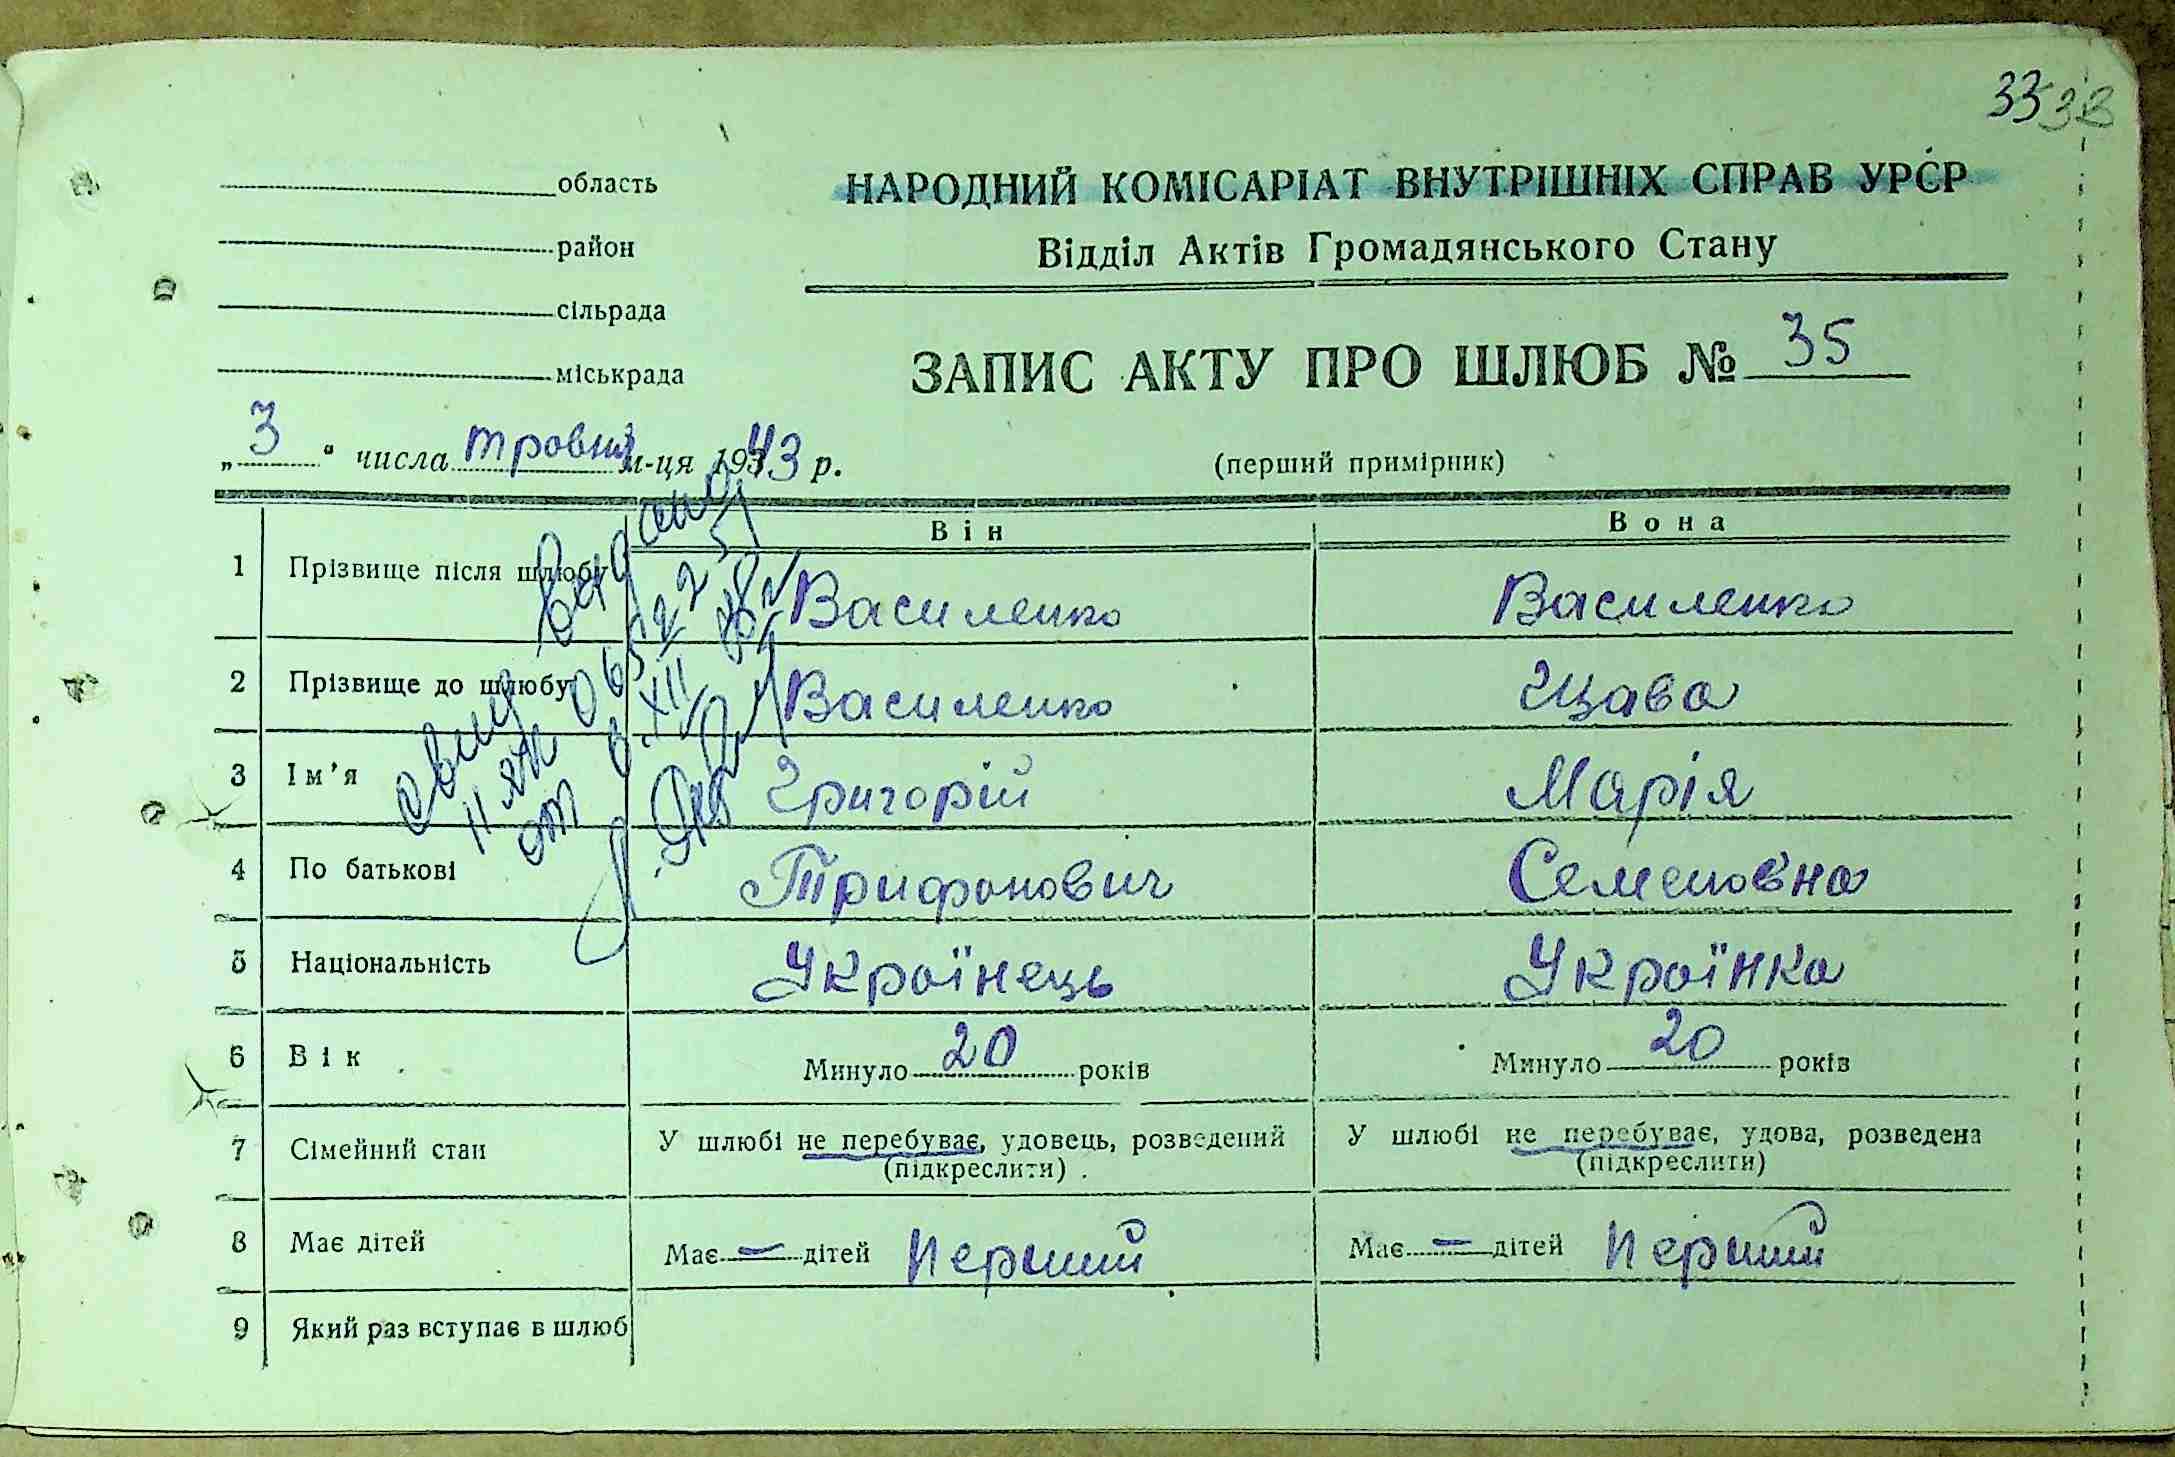 33 33
область
район
сільрада
міськрада
НАРОДНИЙ КОМІСАРІАТ ВНУТРІШНІХ СПРАВ УРСР
Відділ Актів Громадянського Стану
ЗАПИС АКТУ ПРО ШЛЮБ № 35
„3“ числа травня м-ця 1943 р.
(перший примірник)
Він Вона
1 Прізвище після шлюбу Василенко Василенко
2 Прізвище до шлюбу Василенко
3 Ім’я Григорій Марія
4 По батькові Трифонович Семеновна
5 Національність Українець Українка
6 Вік Минуло 20 років Минуло 20 років
7 Сімейний стан У шлюбі не перебуває, удовець, розведений У шлюбі не перебуває, удова, розведена
(підкреслити) (підкреслити)
8 Має дітей Має — дітей Перший Має — дітей Перший
9 Який раз вступає в шлюб